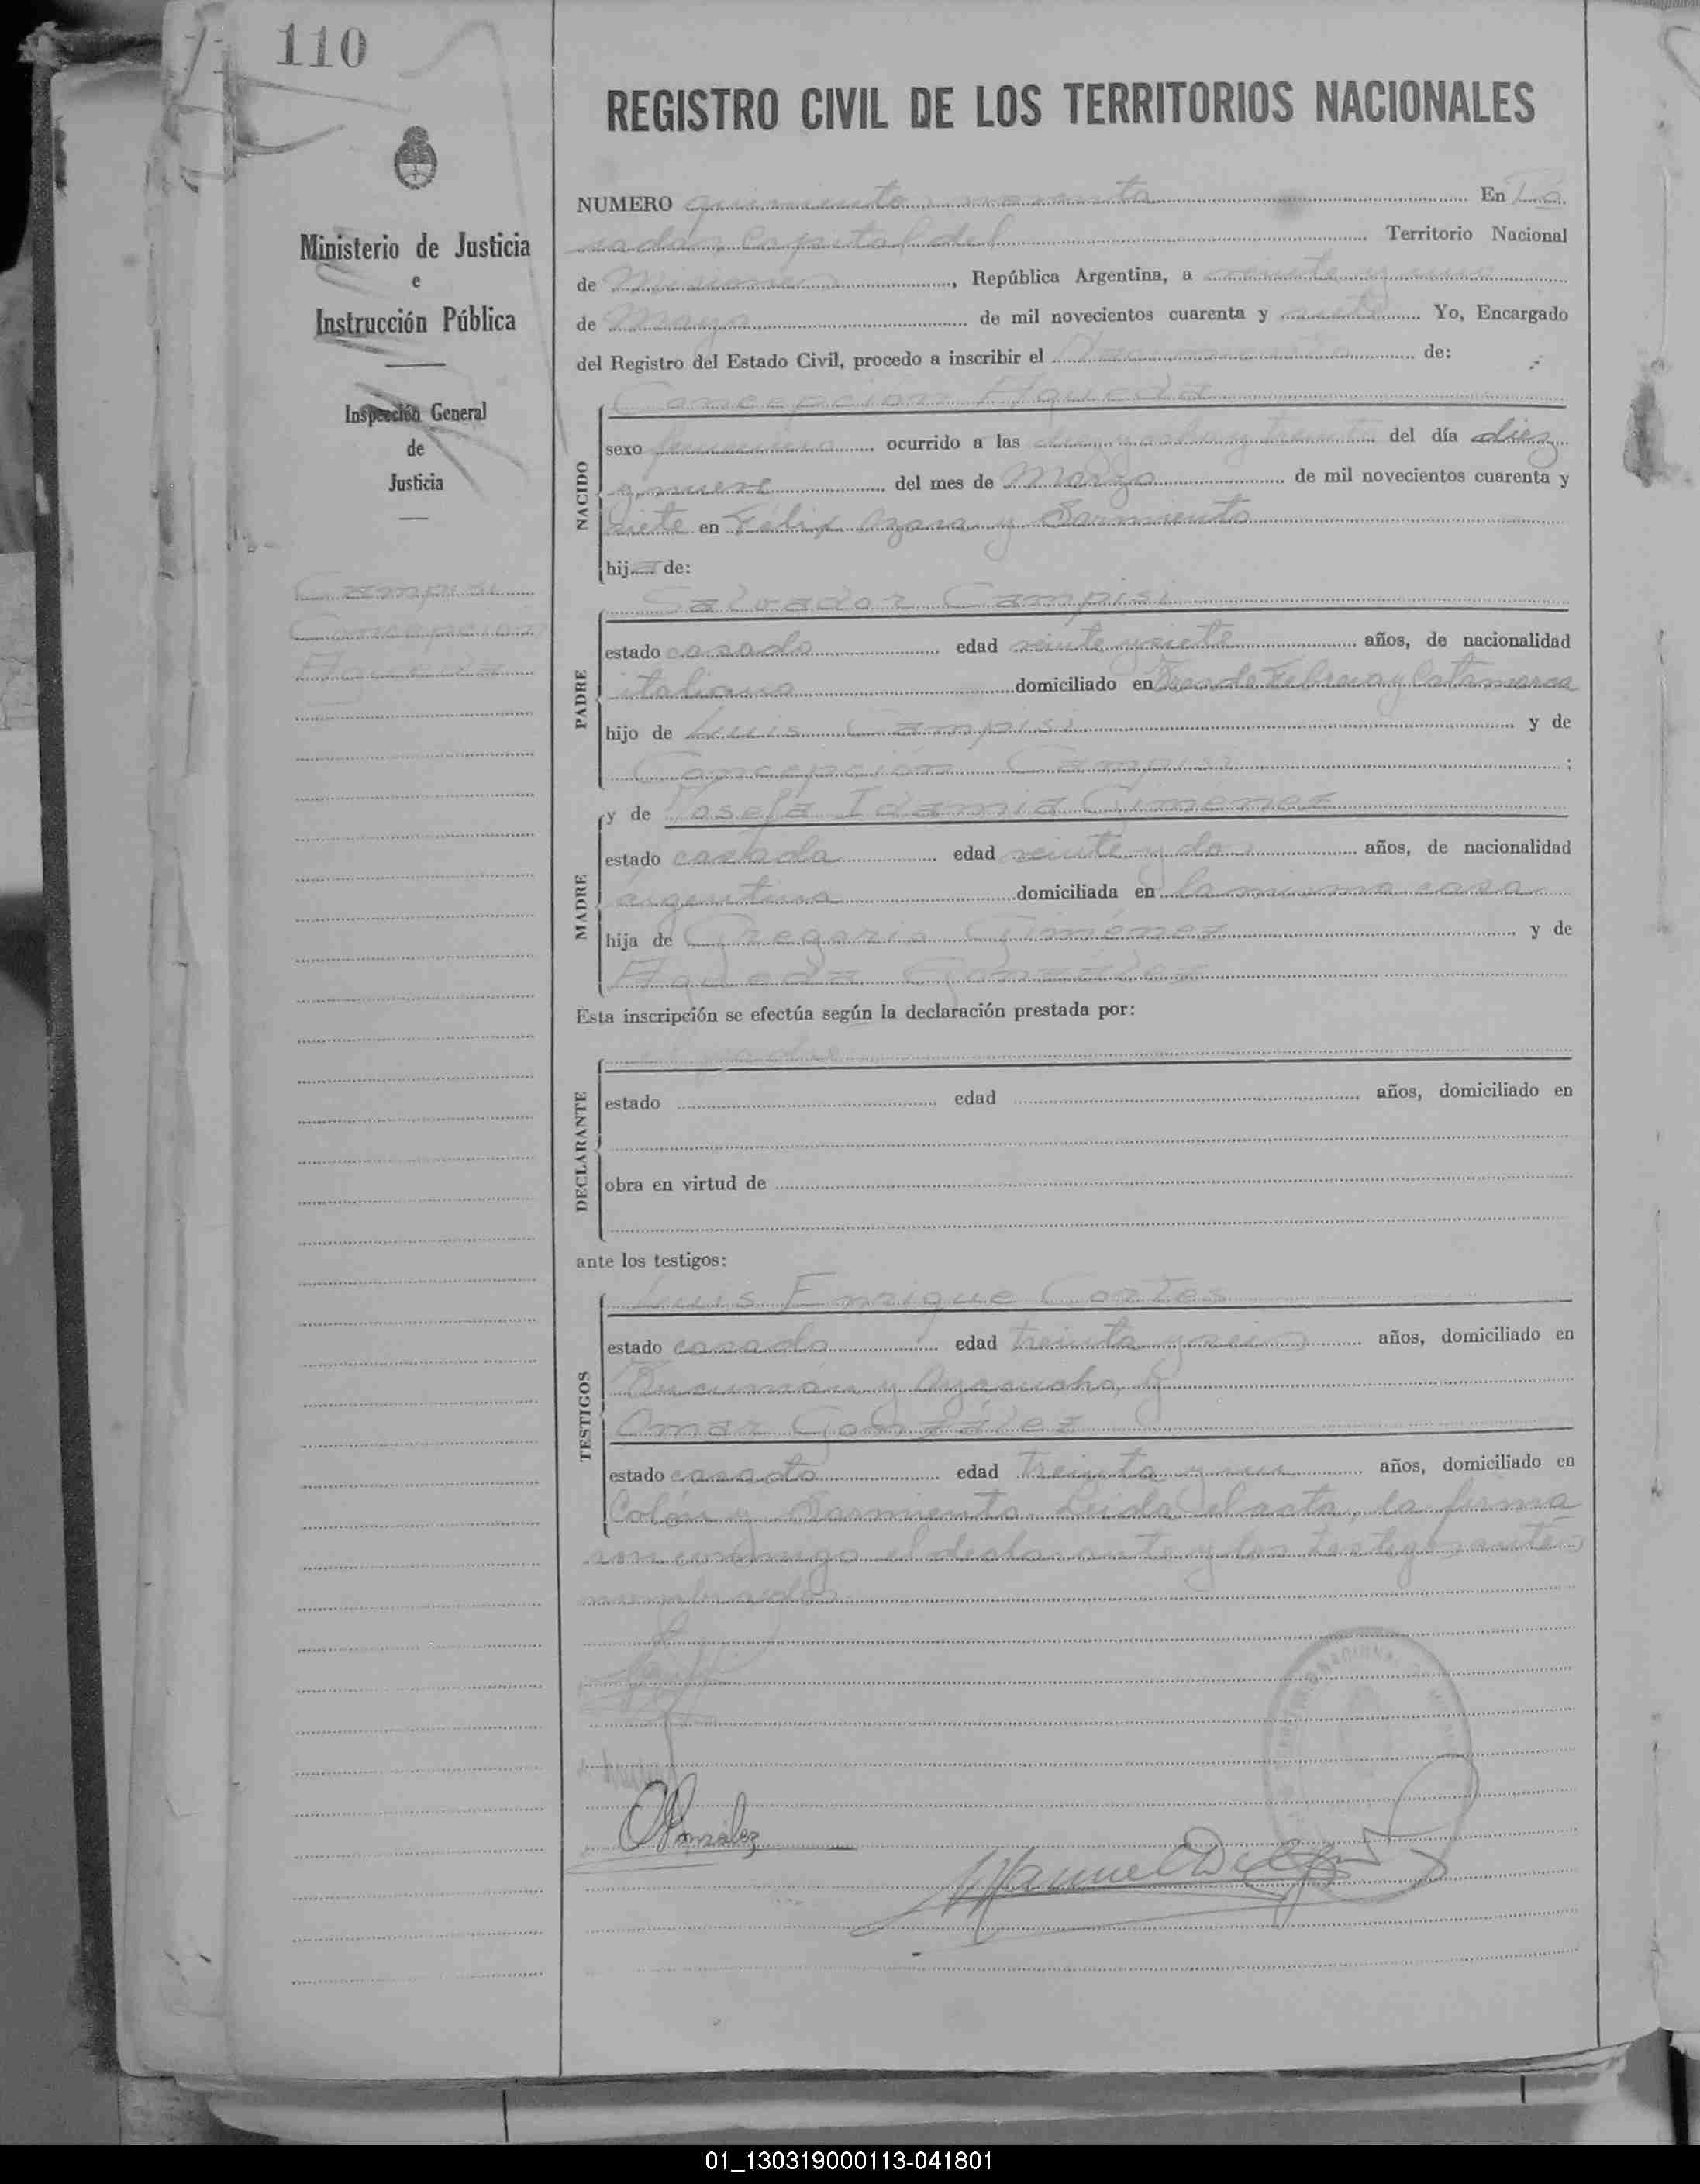 110
REGISTRO CIVIL DE LOS TERRITORIOS NACIONALES
Ministerio de Justicia
e
Instrucción Pública
Inspección General
de
Justicia
Campisi
Concepcion
Agueda
NUMERO quinientos noventa En Po
sadas, Capital del Territorio Nacional
de Misiones, República Argentina, a veinte y uno
de Mayo de mil novecientos cuarenta y siete Yo, Encargado
del Registro del Estado Civil, procedo a inscribir el Nacimiento de:
NACIDO
Concepcion Agueda
sexo femenino ocurrido a las diez y ocho y treinta del día diez
y nueve del mes de Marzo de mil novecientos cuarenta y
siete en Félix Azara y Sarmiento
hija de:
PADRE
Salvador Campisi
estado casado edad veinte y siete años, de nacionalidad
italiano domiciliado en Tres de Febrero y Catamarca
hijo de Luis Campisi y de
Concepción Campisi;
MADRE
y de Josefa Idamia Gimenez
estado casada edad veinte y dos años, de nacionalidad
argentina domiciliada en la misma casa
hija de Gregorio Giménez y de
Agueda González
Esta inscripción se efectúa según la declaración prestada por:
DECLARANTE
el padre
estado edad años, domiciliado en
obra en virtud de
ante los testigos:
TESTIGOS
Luis Enrique Cortes
estado casado edad treinta y seis años, domiciliado en
Tucumán y Ayacucho, y
Omar González
estado casado edad treinta y un años, domiciliado en
Colón y Sarmiento. Leida el acta, la firma
ron conmigo el declarante y los testigos ante
nombrados
OGonzález
Manuel
01_130319000113-041801